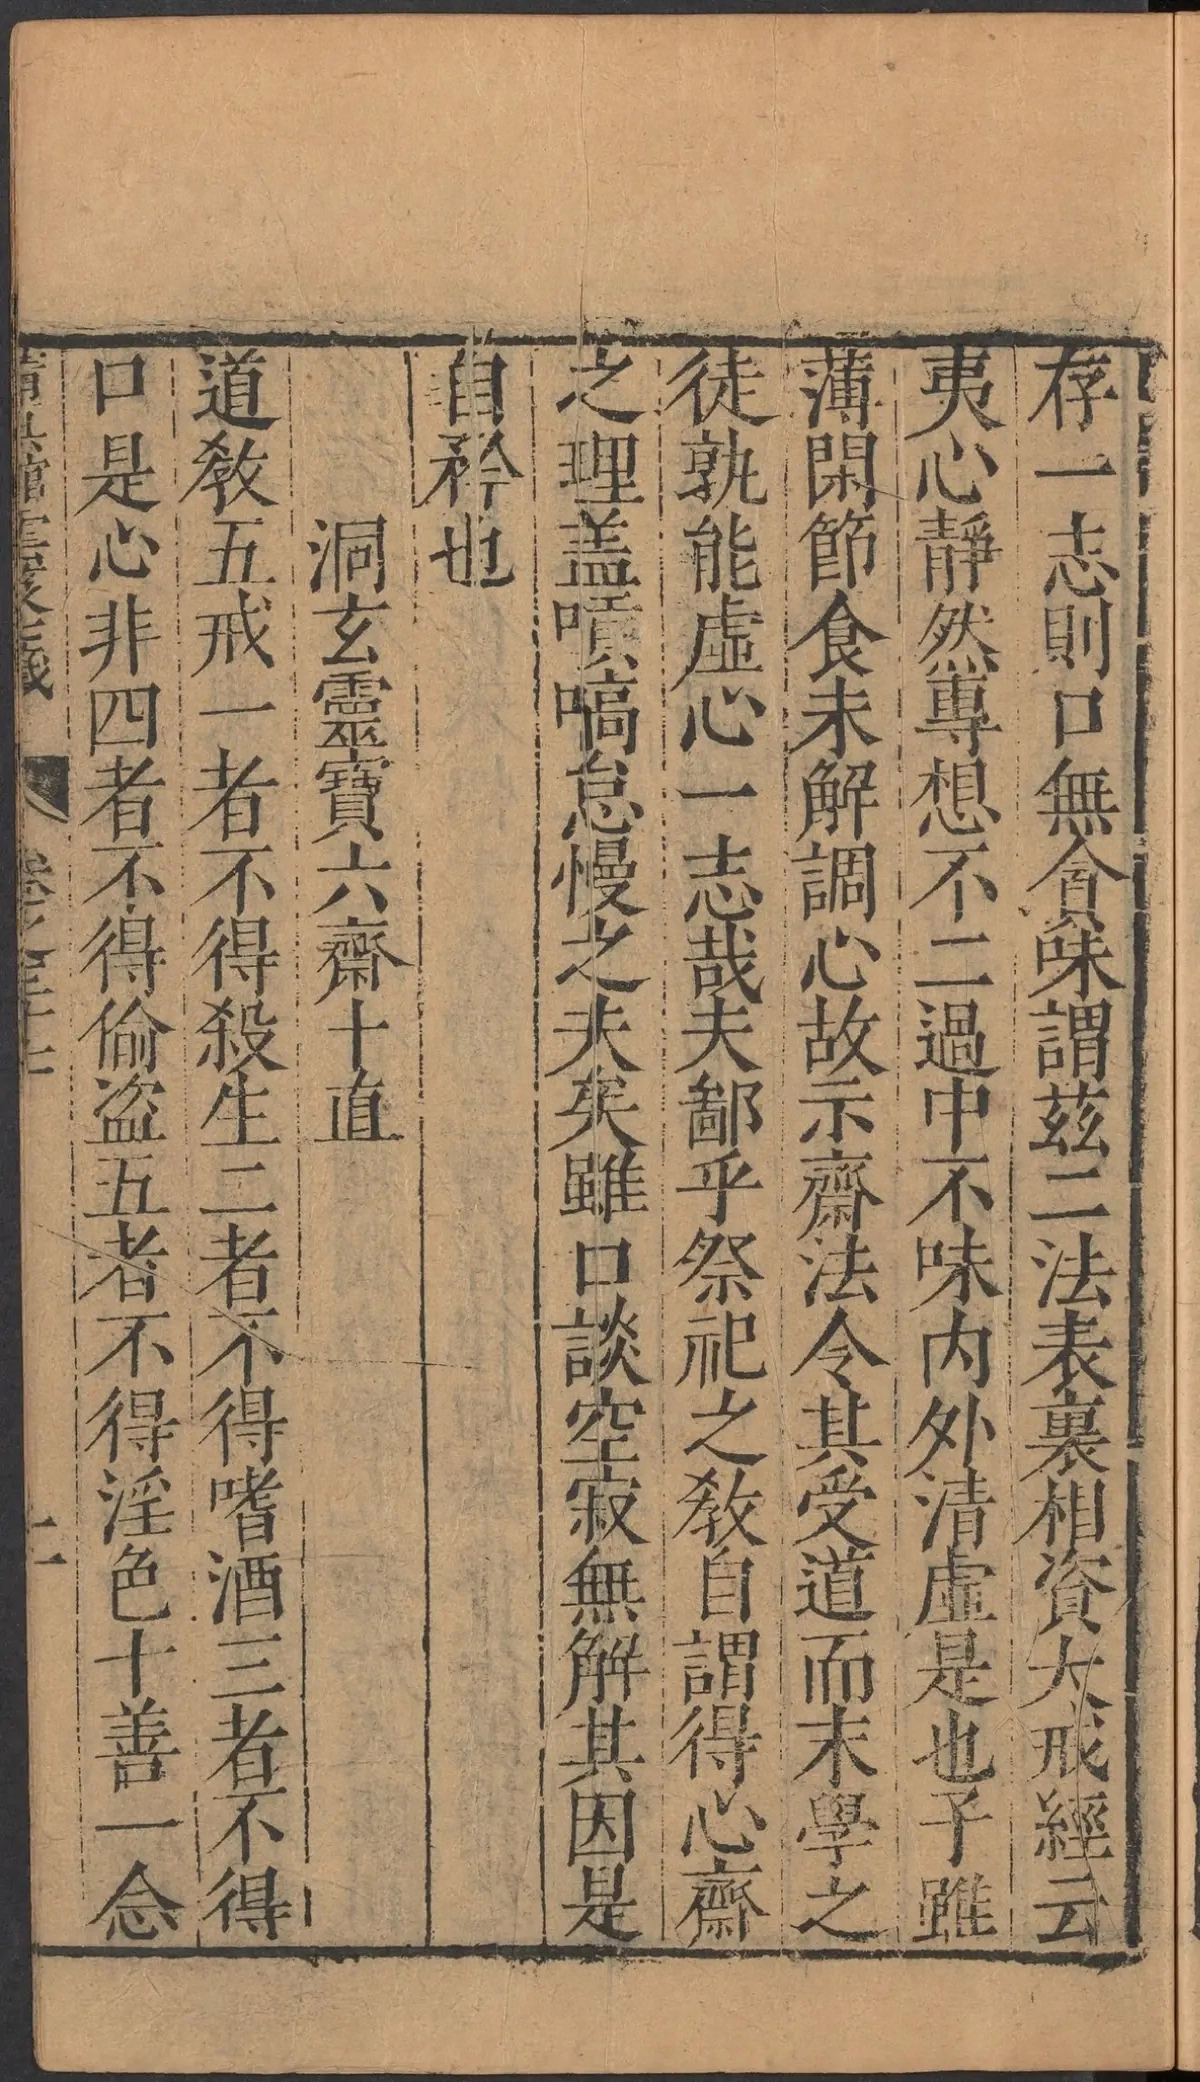 存一志則口無貪味謂茲二法表裏相資大戒經云
夷心靜然專想不二過中不味内外清虛是也予雖
薄閑節食未解調心故示齋法令其受道而末學之
徒孰能虛心一志哉夫鄙乎祭祀之教自謂得心齋
之理盖嘖嗃怠慢之夫矣雖口談空寂無解其因是
自矜也
洞玄靈寶六齋十直
道教五戒一者不得殺生二者不得嗜酒三者不得
口是心非四者不得偷盜五者不得淫色十善一念